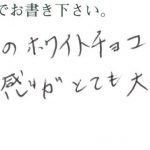 でお書き下さい。
のホワイトチョコ
感りがとても大